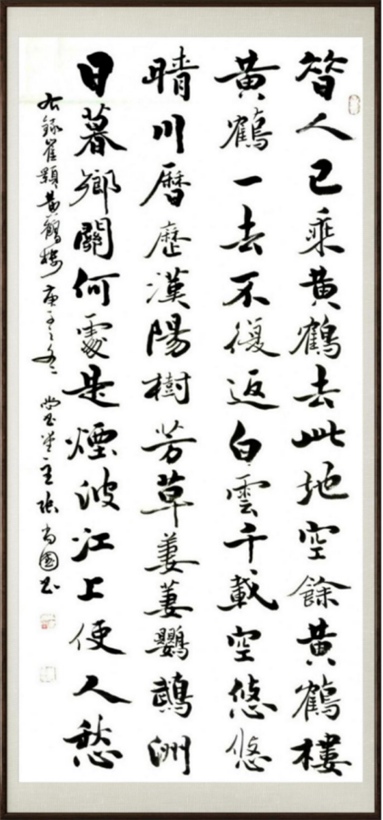 昔人已乘黃鶴去此地空餘黃鶴樓
黃鶴一去不復返白雲千載空悠悠
晴川曆歷漢陽樹芳草萋萋鸚鵡洲
日暮鄉關何處是煙波江上使人愁
右錄崔顥黃鶴樓 庚子之冬 堂主張尚國書